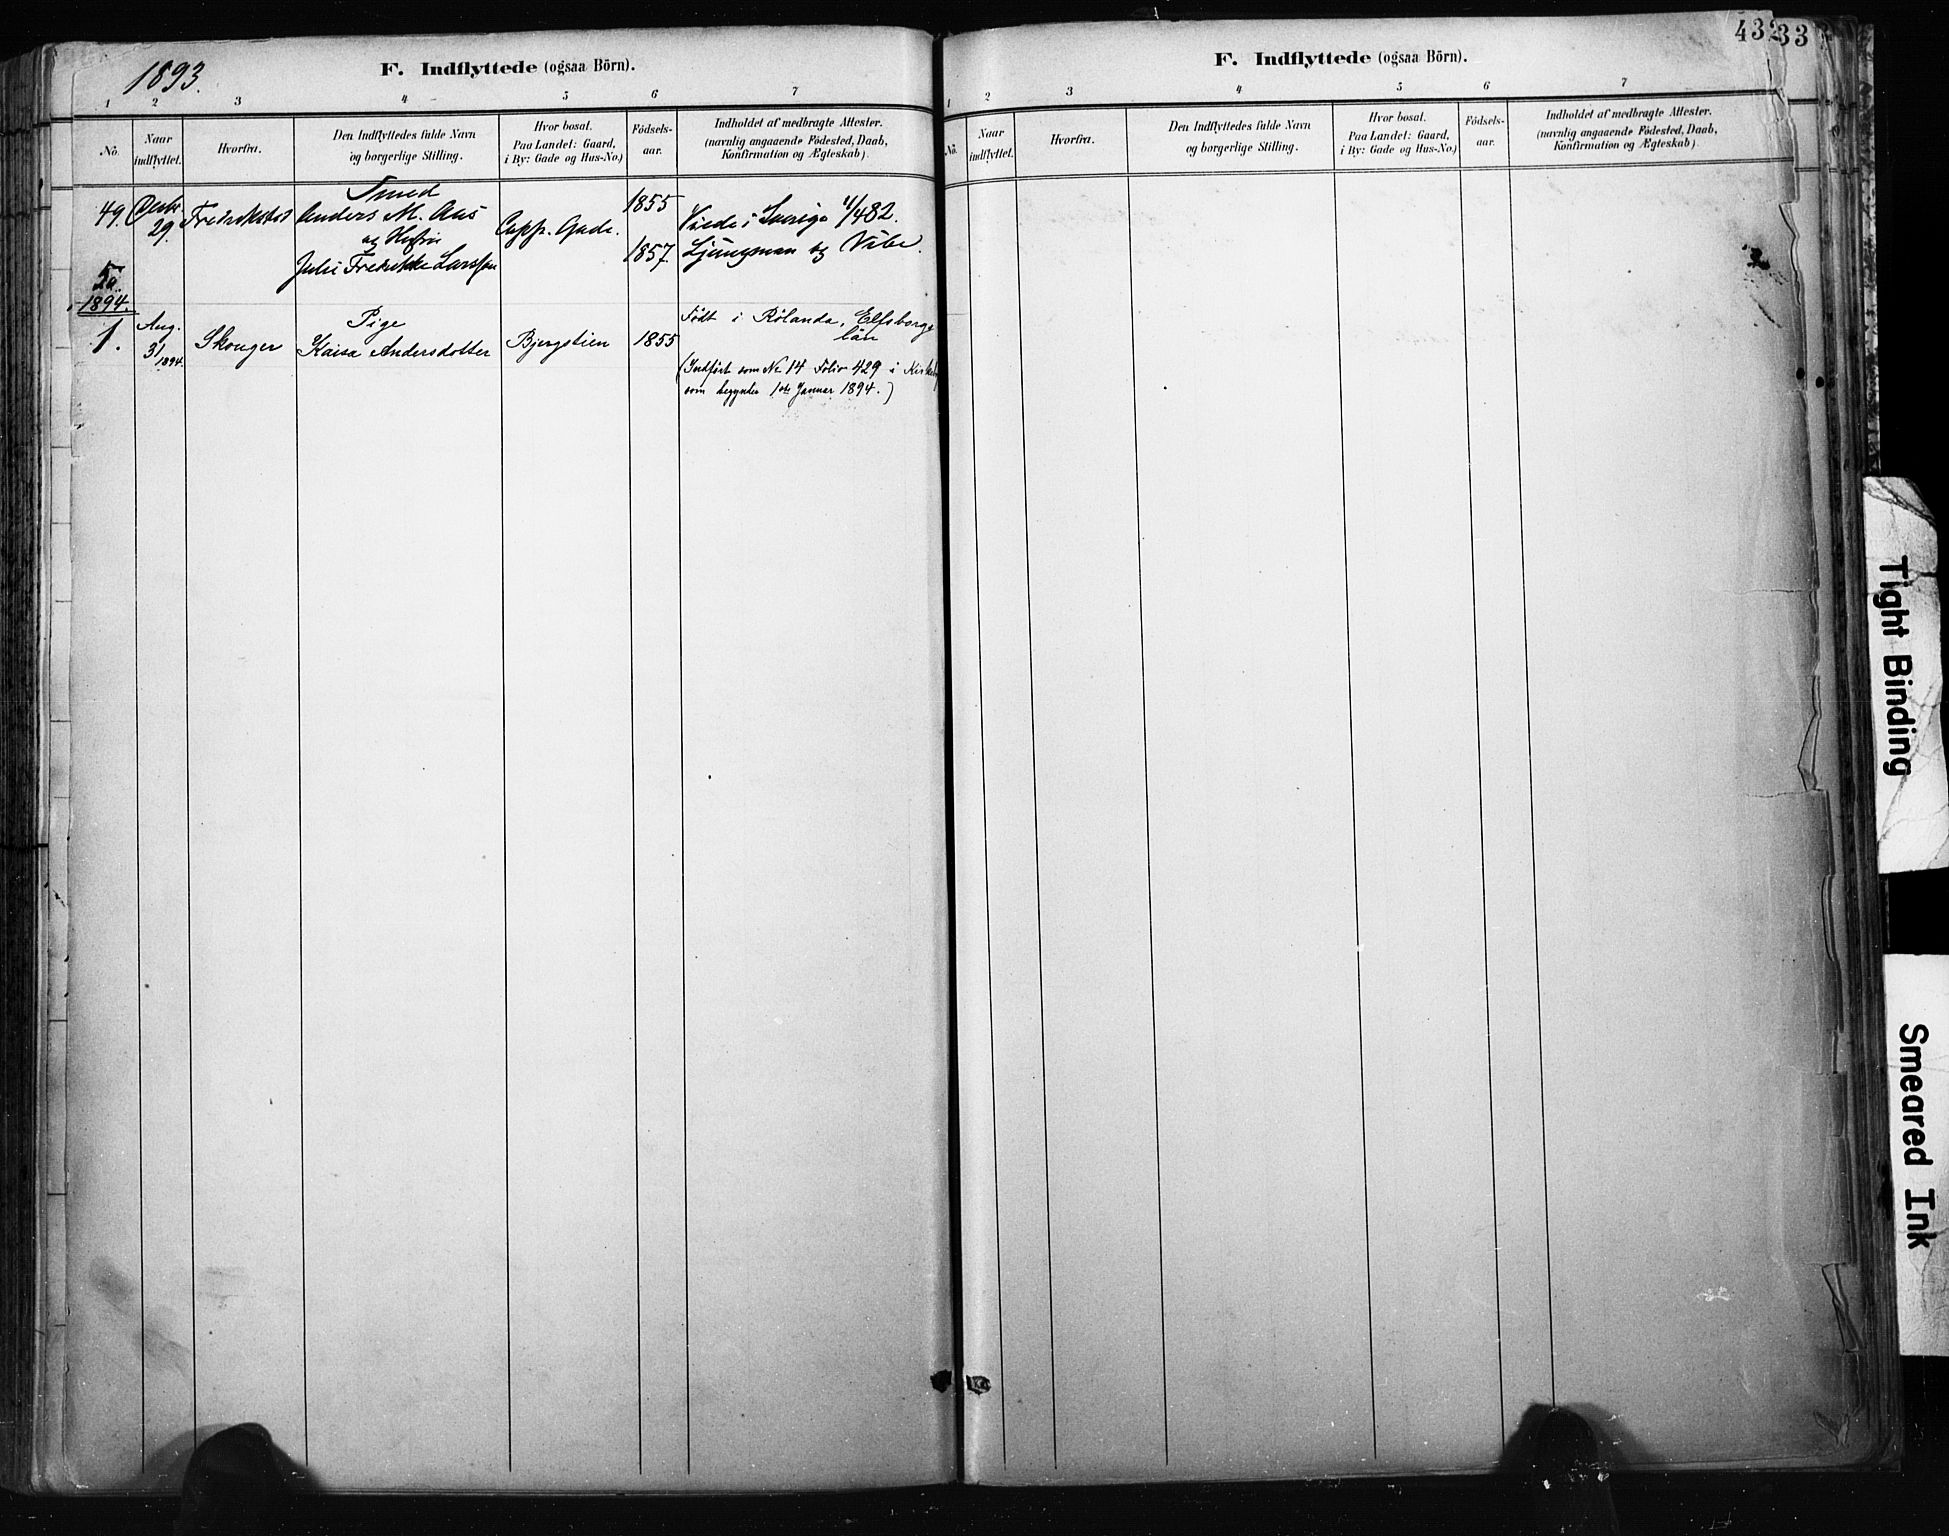 1893.
F. Indflyttede (ogsaa Börn).
1 2 3 4 5 6 7
No. Naar indflyttet. Hvorfra. Den Indflyttedes fulde Navn og borgerlige Stilling. Hvor bosat. Paa Landet: Gaard, i By: Gade og Hus-No.) Födsels-aar. Indholdet af medbragte Attester. (navnlig angaaende Födested, Daab, Konfirmation og Ægteskab).
Smed
49. 29. Fredrikstad Anders M. Aas 1855
og Hustru Capp. Gade. Viede i Sverige
Julie Fredrikke Larssen 1857. Ljungman og Vibe.
50.
1894.
1. Aug. 31 1894. Skouger Pige
Kaisa Andersdotter Bjergstien 1855 Født i Rölanda, Elfsborgs
län
(Indført som No 14 Folio 429 i
som begynder 1ste Januar 1894.)
432
33
F. Indflyttede (ogsaa Börn).
1 2 3 4 5 6 7
No. Naar indflyttet. Hvorfra. Den Indflyttedes fulde Navn og borgerlige Stilling. Hvor bosat. Paa Landet: Gaard, i By: Gade og Hus-No.) Födsels-aar. Indholdet af medbragte Attester. (navnlig angaaende Födested, Daab, Konfirmation og Ægteskab).
Tight Binding
Smeared Ink